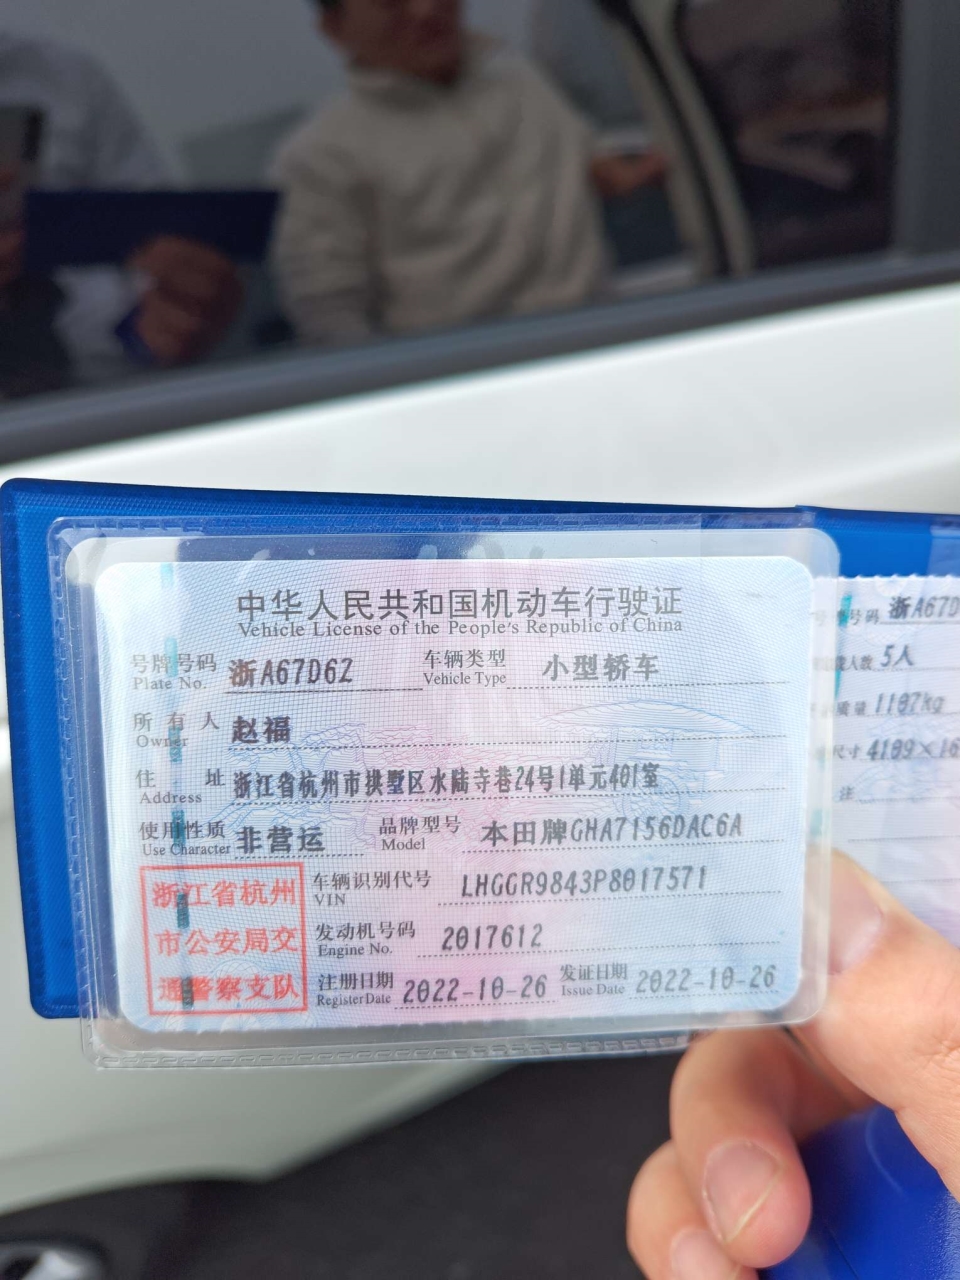 中华人民共和国机动车行驶证
Vehicle License of the People's Republic of China
号牌号码 浙A67D6Z 车辆类型 小型轿车
Plate No. Vehicle Type
所有人 赵福
Owner
住址 浙江省杭州市拱墅区水陆寺巷24号1单元401室
Address
使用性质 非营运 品牌型号 本田牌GHA7156DAC6A
Use Character Model
浙江省杭州
市公安局交
通警察支队
车辆识别代号 LHGGR9843P8017571
VIN
发动机号码 2017612
Engine No.
注册日期 2022-10-26 发证日期 2022-10-26
Register Date Issue Date
号码 浙A67D
人数 5人
质量 1107kg
尺寸 4109×16
注